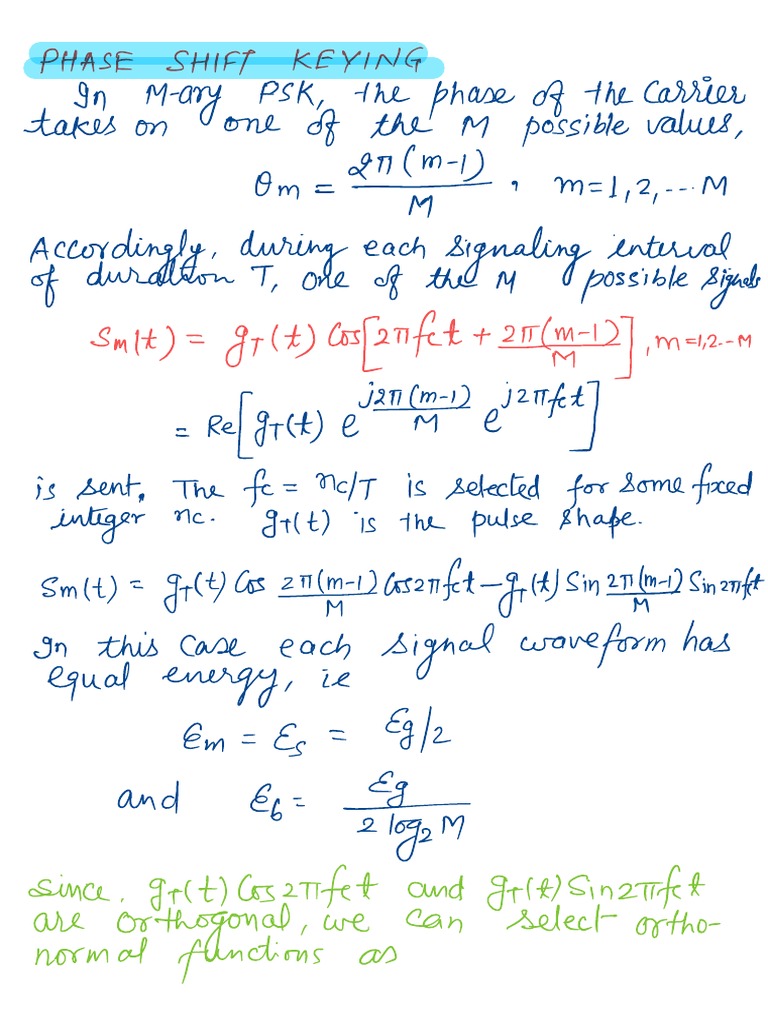 PHASE SHIFT KEYING
In M-ary PSK, the phase of the carrier
takes on one of the M possible values,
θm = 2π(m-1)/M , m=1,2,--- M
Accordingly, during each signaling interval
of duration T, one of the M possible signals
Sm(t) = gT(t) Cos[2πfct + 2π(m-1)/M], m=1,2.--M
= Re[gT(t) e^{j2π(m-1)/M} e^{j2πfct}]
is sent. The fc = nc/T is selected for some fixed
integer nc. gT(t) is the pulse shape.
Sm(t) = gT(t) Cos 2π(m-1)/M Cos2πfct - gT(t) Sin 2π(m-1)/M Sin2πfct
In this case each signal waveform has
equal energy, ie
Ɛm = Ɛs = Ɛg/2
and Ɛb = Ɛg/(2 log2 M)
Since, gT(t) Cos2πfct and gT(t) Sin2πfct
are orthogonal, we can select ortho-
normal functions as